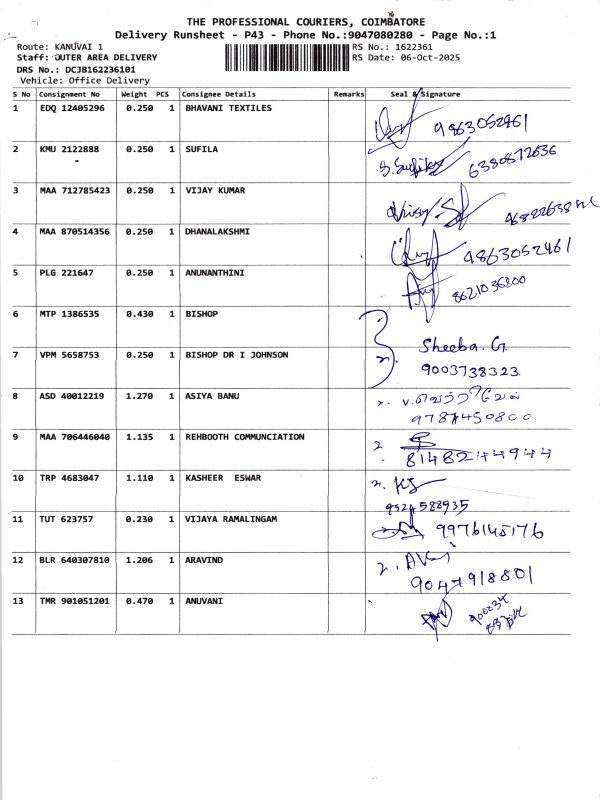 THE PROFESSIONAL COURIERS, COIMBATORE
Delivery Runsheet - P43 - Phone No.:9047080280 - Page No.:1
Route: KANUVAI 1 RS No.: 1622361
Staff: OUTER AREA DELIVERY RS Date: 06-Oct-2025
DRS No.: DCJB162236101
Vehicle: Office Delivery
S No Consignment No Weight PCS Consignee Details Remarks Seal & Signature
1 EDQ 12405296 0.250 1 BHAVANI TEXTILES 9863052961
2 KMU 2122888 0.250 1 SUFILA S. Sufila
3 MAA 712785423 0.250 1 VIJAY KUMAR
4 MAA 870514356 0.250 1 DHANALAKSHMI 9863052961
5 PLG 221647 0.250 1 ANUNANTHINI 8621036800
6 MTP 1386535 0.430 1 BISHOP
Sheeba. G
7 VPM 5658753 0.250 1 BISHOP DR I JOHNSON
9003738323
8 ASD 40012219 1.270 1 ASIYA BANU
9787450800
9 MAA 706446040 1.135 1 REHBOOTH COMMUNCIATION
8148244944
10 TRP 4683047 1.110 1 KASHEER ESWAR
9524588935
11 TUT 623757 0.230 1 VIJAYA RAMALINGAM 9976145176
12 BLR 640307810 1.206 1 ARAVIND
9047918801
13 TMR 901051201 0.470 1 ANUVANI